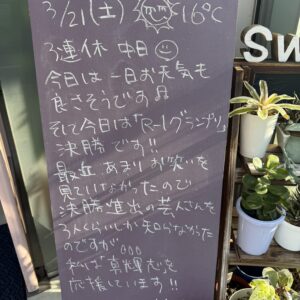 3/21(土) 16℃
3連休 中日
今日は一日お天気も
良さそうです♫
そして今日は「R-1グランプリ」
決勝です!!
最近あまりお笑いを
見ていなかったので
決勝進出の芸人さんを
3人くらいしか知らなかった
のですが。。。
私は「真輝志」を
応援しています!!
SW